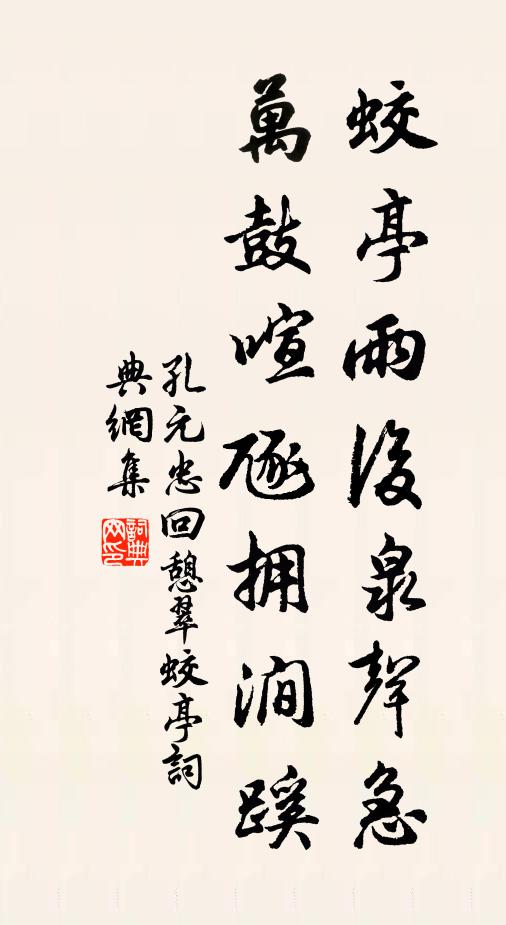 蛟亭雨後泉聲急
萬鼓喧豗拥澗蹊
孔元忠回憩翠蛟亭詞
典網集
詞典网印